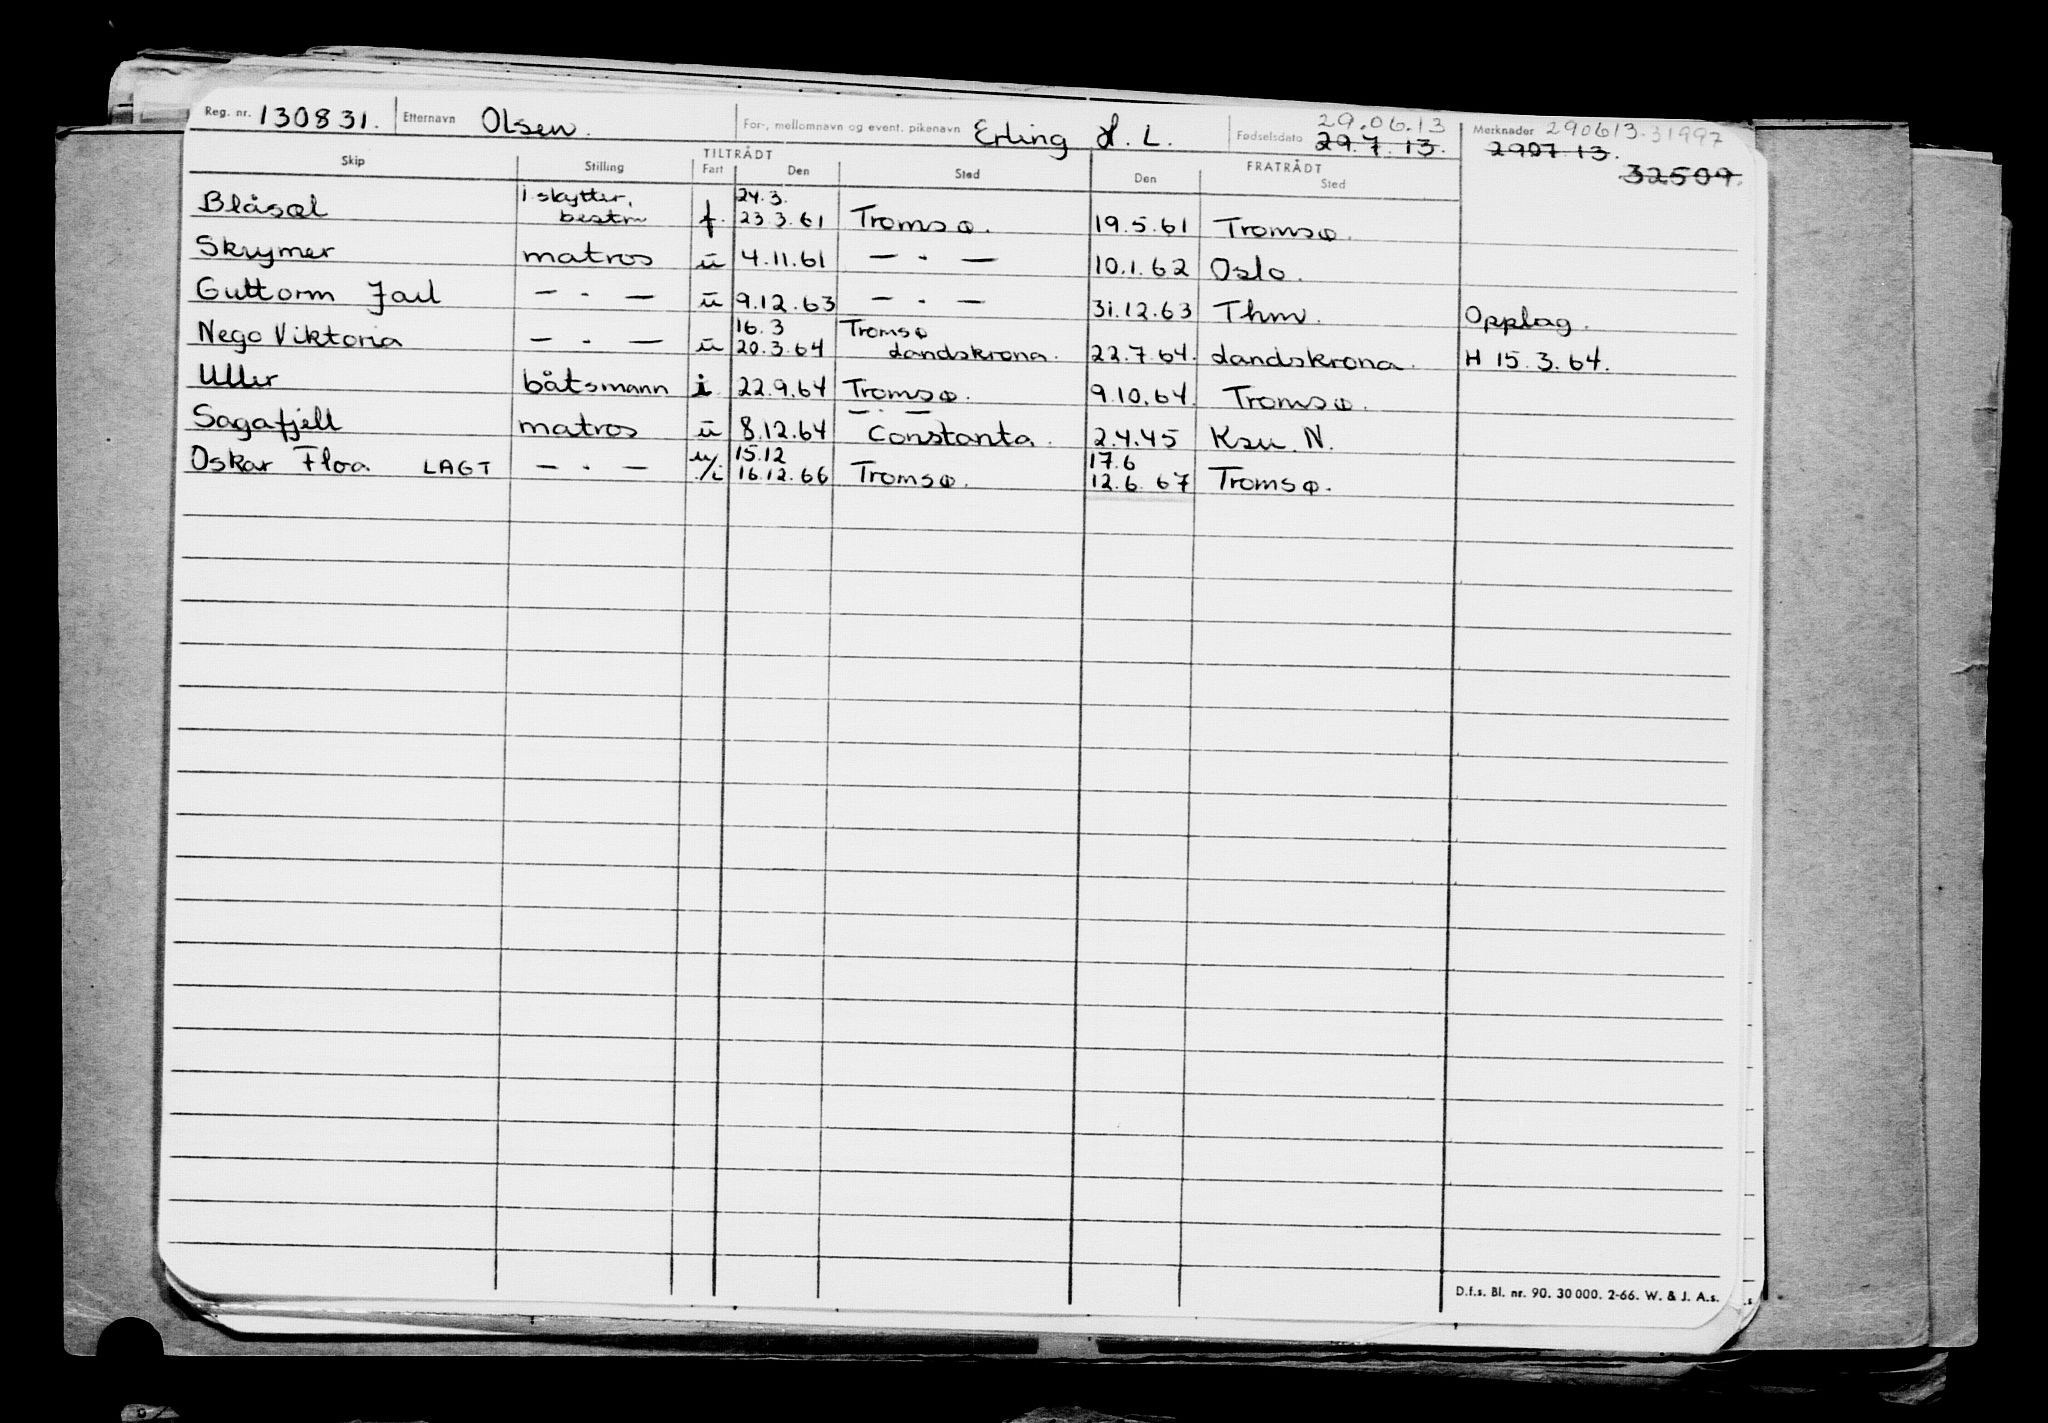 29.06.13 290613.31997
Reg. nr. 130831. Etternavn Olsen. For-, mellomnavn og event. pikenavn Erling H. L. Fødselsdato 29.7.13. Merknader 2907 13.
32509.
TILTRÅDT FRATRÅDT
Skip Stilling Fart Den Sted Den Sted
i skytter, 24.3.
Blåsæl bestm f. 23.3.61 Tromsø. 19.5.61 Tromsø.
Skrymer matros u 4.11.61 — . — 10.1.62 Oslo.
Guttorm Jarl — . — u 9.12.63 — . — 31.12.63 Thm. Opplag.
16.3 Tromsø
Nego Viktoria — . — u 20.3.64 Landskrona. 22.7.64. Landskrona. H 15.3.64.
Uller båtsmann i. 22.9.64 Tromsø. 9.10.64. Tromsø.
— . —
Sagafjell matros u 8.12.64 Constanta. 2.4.45 Ksu. N.
u/i 15.12 17.6
Oskar Floa LAGT — . — 16.12.66 Tromsø. 12.6.67 Tromsø.
D.f.s. Bl. nr. 90. 30 000. 2-66. W. & J. A.s.